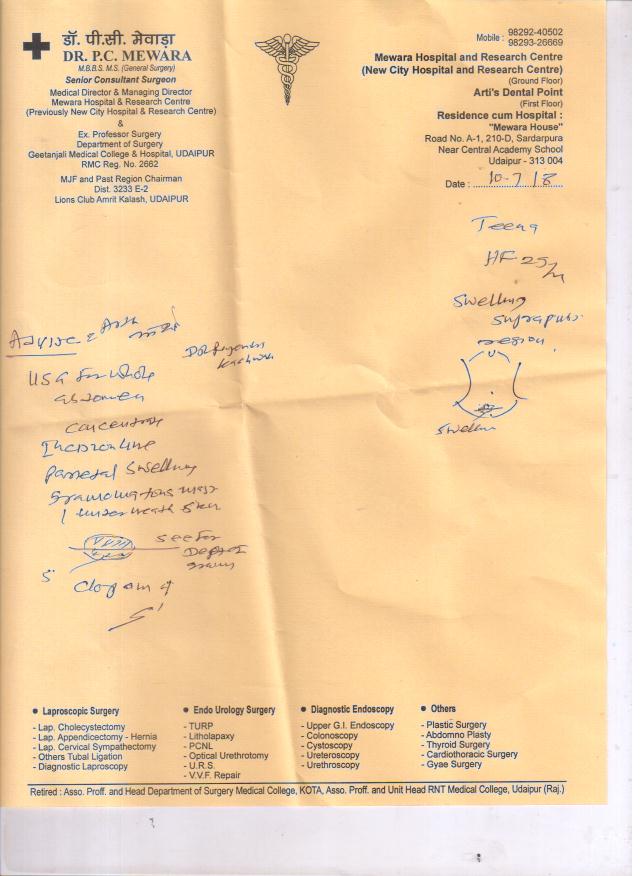 डॉ. पी.सी. मेवाड़ा
DR. P.C. MEWARA
M.B.B.S. M.S. (General Surgery)
Senior Consultant Surgeon
Medical Director & Managing Director
Mewara Hospital & Research Centre
(Previously New City Hospital & Research Centre)
&
Ex. Professor Surgery
Department of Surgery
Geetanjali Medical College & Hospital, UDAIPUR
RMC Reg. No. 2662
MJF and Past Region Chairman
Dist. 3233 E-2
Lions Club Amrit Kalash, UDAIPUR
Mobile : 98292-40502
98293-26669
Mewara Hospital and Research Centre
(New City Hospital and Research Centre)
(Ground Floor)
Arti's Dental Point
(First Floor)
Residence cum Hospital :
"Mewara House"
Road No. A-1, 210-D, Sardarpura
Near Central Academy School
Udaipur - 313 004
Date : 10-7/18
Teena
HF 25/
Swelling
Suprapubic
region
Swelling
USG for whole
abdomen
Swelling
underneath skin
see for
• Laproscopic Surgery
- Lap. Cholecystectomy
- Lap. Appendictomy - Hernia
- Lap. Cervical Sympathectomy
- Others Tubal Ligation
- Diagnostic Laproscopy
• Endo Urology Surgery
- TURP
- Litholapaxy
- PCNL
- Optical Urethrotomy
- U.R.S.
- V.V.F. Repair
• Diagnostic Endoscopy
- Upper G.I. Endoscopy
- Colonoscopy
- Cystoscopy
- Ureteroscopy
- Urethroscopy
• Others
- Plastic Surgery
- Abdomno Plasty
- Thyroid Surgery
- Cardiothoracic Surgery
- Gyae Surgery
Retired : Asso. Proff. and Head Department of Surgery Medical College, KOTA, Asso. Proff. and Unit Head RNT Medical College, Udaipur (Raj.)